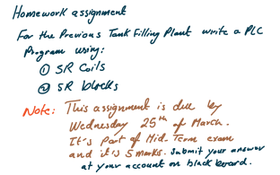 Homework assignment
For the Previous Tank Filling Plant write a PLC
Program using:
① SR Coils
② SR blocks
Note: This assignment is due by
Wednesday 25th of March.
It's Part of Mid-Term exam
and it's 5 marks. Submit your answer
at your account on black board.